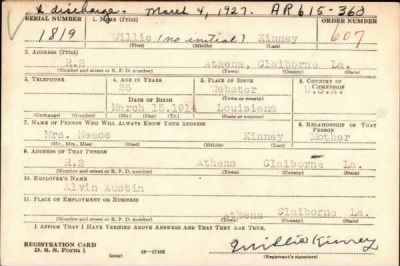 & discharge. March 4, 1927. AR 615-360
SERIAL NUMBER 1. NAME (Print) ORDER NUMBER
1819 Willie (no initial) Kinney 607
(First) (Middle) (Last)
2. ADDRESS (Print)
R.2 Athens, Claiborne La.
(Number and street or R. F. D. number) (Town) (County) (State)
3. TELEPHONE 4. AGE IN YEARS 5. PLACE OF BIRTH 6. COUNTRY OF CITIZENSHIP
26 Webster U.S.A.
DATE OF BIRTH (Town or county)
March 15, 1914 Louisiana
(Exchange) (Number) (Mo.) (Day) (Yr.) (State or country)
7. NAME OF PERSON WHO WILL ALWAYS KNOW YOUR ADDRESS 8. RELATIONSHIP OF THAT PERSON
Mrs. Reece Kinney Mother
(Mr., Mrs., Miss) (First) (Middle) (Last)
9. ADDRESS OF THAT PERSON
R.2 Athens Claiborne La.
(Number and street or R. F. D. number) (Town) (County) (State)
10. EMPLOYER'S NAME
Alvin Austin
11. PLACE OF EMPLOYMENT OR BUSINESS
Athens Claiborne La.
(Number and street or R. F. D. number) (Town) (County) (State)
I AFFIRM THAT I HAVE VERIFIED ABOVE ANSWERS AND THAT THEY ARE TRUE.
REGISTRATION CARD
D. S. S. Form 1 (over) Willie Kinney
(Registrant's signature)